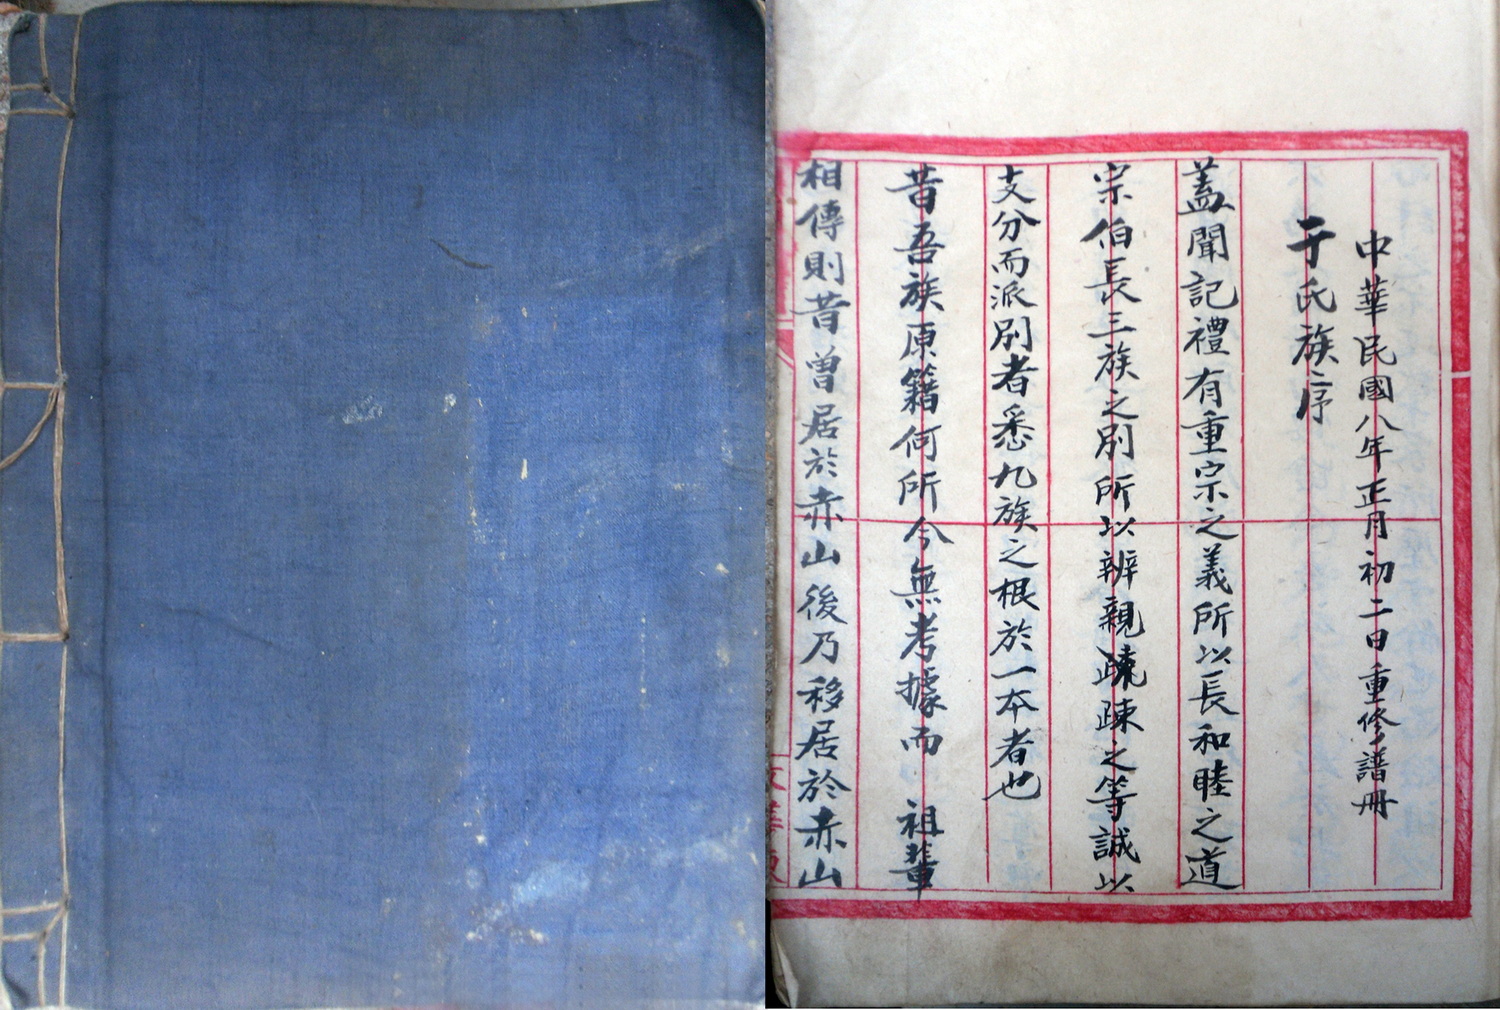 中華民國八年正月初二日重修譜冊
于氏族序
蓋聞記禮有重宗之義所以長和睦之道
宗伯長三族之別所以辨親疎疎之等誠以
支分而派別者悉九族之根於一本者也
昔吾族原籍何所今無考據而 祖輩
相傳則昔曾居於赤山後乃移居於赤山